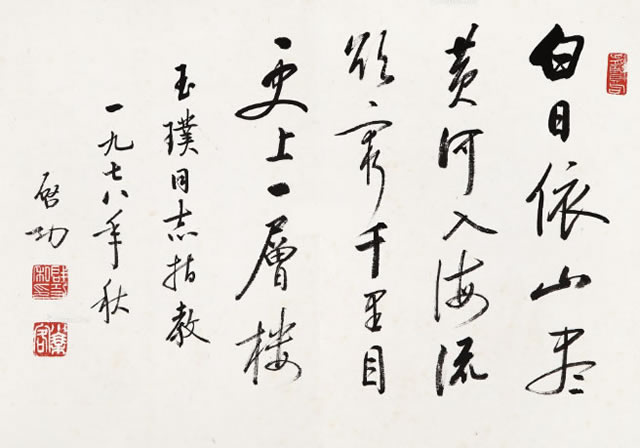 白日依山盡
黄河入海流
欲窮千里目
更上一層楼
玉璞同志指教
一九七八年秋
啓功